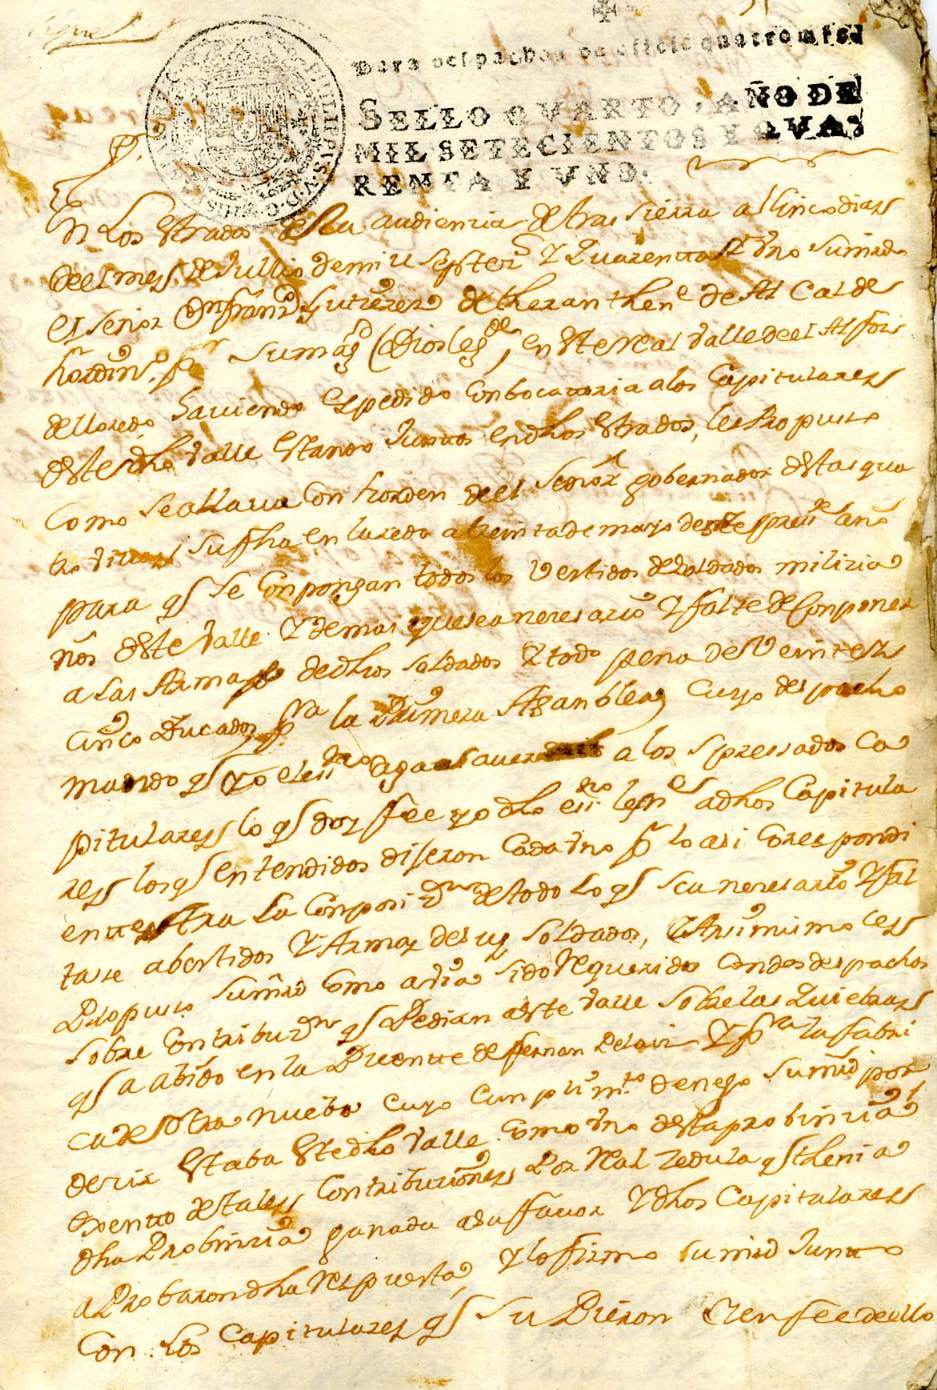 Para despachos de oficio quatro mrs.
SELLO QVARTO, AÑO DE
MIL SETECIENTOS Y QVA-
RENTA Y VNO.
PHILIPUS V D G
En Los Estrados de la audiencia de tras sierra a cinco dias
del mes de Jullio de mil septecr.s y quarenta y uno su mrd
el señor Dn franco. Gutierrez de theran thene. de Alcalde
hordino. pr su magd (Dios le gde) en este real valle de el Alfoz
de lloredo haviendo espedido conbocatoria a los Capitulares
de este dho valle estando Juntos en dhos estrados, les Propuso
Como se allava con horden del Señor gobernador de estas qua
tro villas su fha en laredo a treinta de mayo de este preste. año
para qe se conpongan todos los bestidos de soldados milicia
nos de este valle y demas que sea neresario y falte de Conponer
a las Armas de dhos soldados y todo pena de veinte y
cinco Ducados pa la Primera Asamblea, cuyo despacho
mando qe yo el essno aga saver a los spresados Ca
pitulares lo qe doy fee yo dho essno leyes a dhos Capitula
res los qe entendidos dijeron Cada uno pr lo asi Corespondi
ente la Conposizn de todo lo qe sea neresario y fal
tase a bestidos y Armas de sus soldados, y Asimismo les
Propuso su mrd como avia sido Requerido con dos despachos
sobre Contribuzn qe Pedian a este valle sobre las quiebras
qe a abido en la Puente de fernan Pelaiz y pa la fabri
ca de otra nueba cuyo cunplimto. denego su mrd por
decir estaba este dho valle como uno de esta probincia
exento de tales Contribuciones por Real zedula qe thenia
dha Probincia ganada a su favor y dhos Capitulares
aProbaron dha Respuesta, y lo firmo su mrd Junto
Con los capitulares qe supieron y en fee de ello